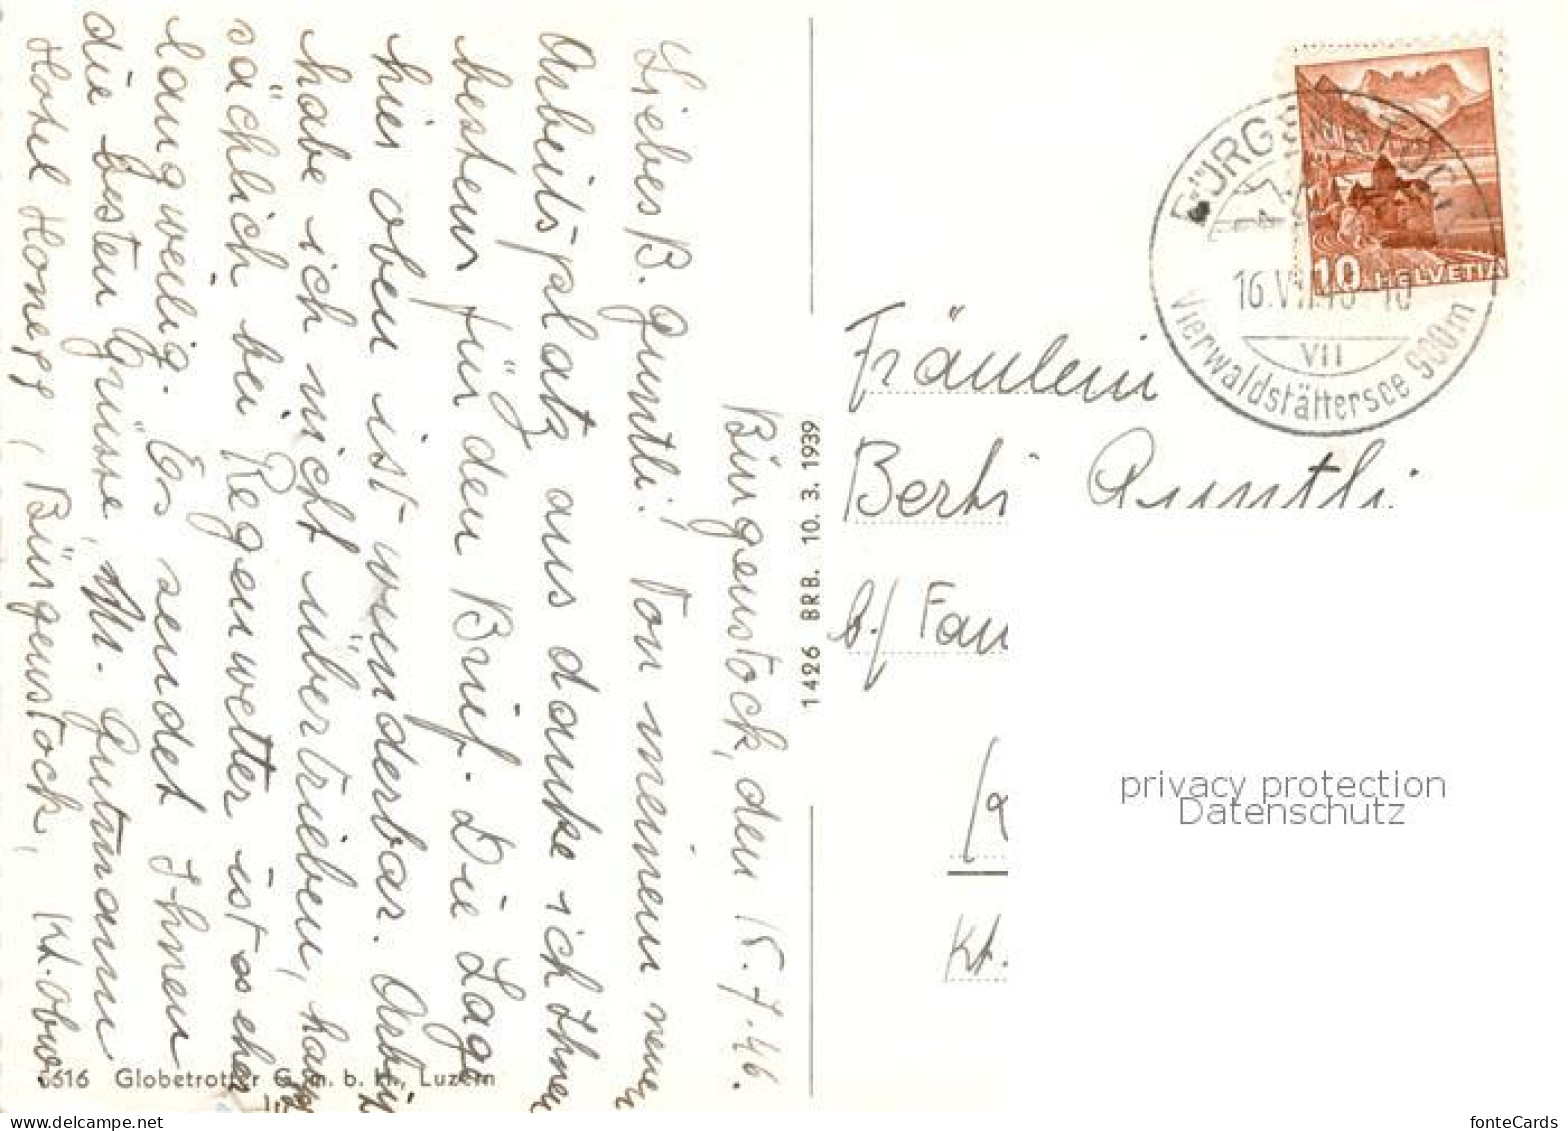 Bürgenstock, den 15.7.46.
Liebes B. Guntli! Von meinem neuen
Arbeitsplatz aus danke ich Ihnen
bestens für den Brief. Die Lage
hier oben ist wunderbar. Arbeit
habe ich nicht übertrieben,
sächlich bei Regenwetter ist es eher
langweilig. Es sendet Ihnen
die besten Grüsse, M. Gutmann
Hotel Honegg, Bürgenstock, Kt. Obw.
6616 Globetrotter G. m. b. H., Luzern
1426 BRB. 10. 3. 1939
BÜRGENSTOCK
16.VII.46-10
VII
Vierwaldstättersee 900m
10 HELVETIA
Fräulein
Berti Guntli
b/ Fam
Kt.
privacy protection
Datenschutz
www.delcampe.net
fonteCards